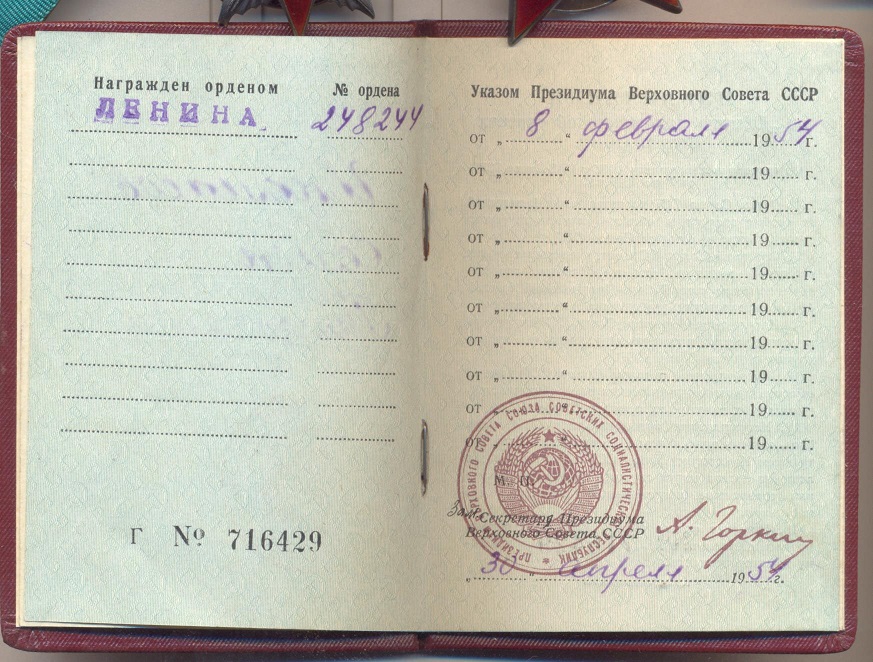 Награжден орденом
№ ордена
ЛЕНИНА
248244
Г № 716429
Указом Президиума Верховного Совета СССР
от „ 8 “ февраля 1954 г.
от „ “ 19 г.
от „ “ 19 г.
от „ “ 19 г.
от „ “ 19 г.
от „ “ 19 г.
от „ “ 19 г.
от „ “ 19 г.
от „ “ 19 г.
от „ “ 19 г.
М. П.
ПРЕЗИДИУМ ВЕРХОВНОГО СОВЕТА СОЮЗА СОВЕТСКИХ СОЦИАЛИСТИЧЕСКИХ РЕСПУБЛИК
Зам. Секретаря Президиума
Верховного Совета СССР
А. Горкин
„ 30 “ апреля 1954 г.